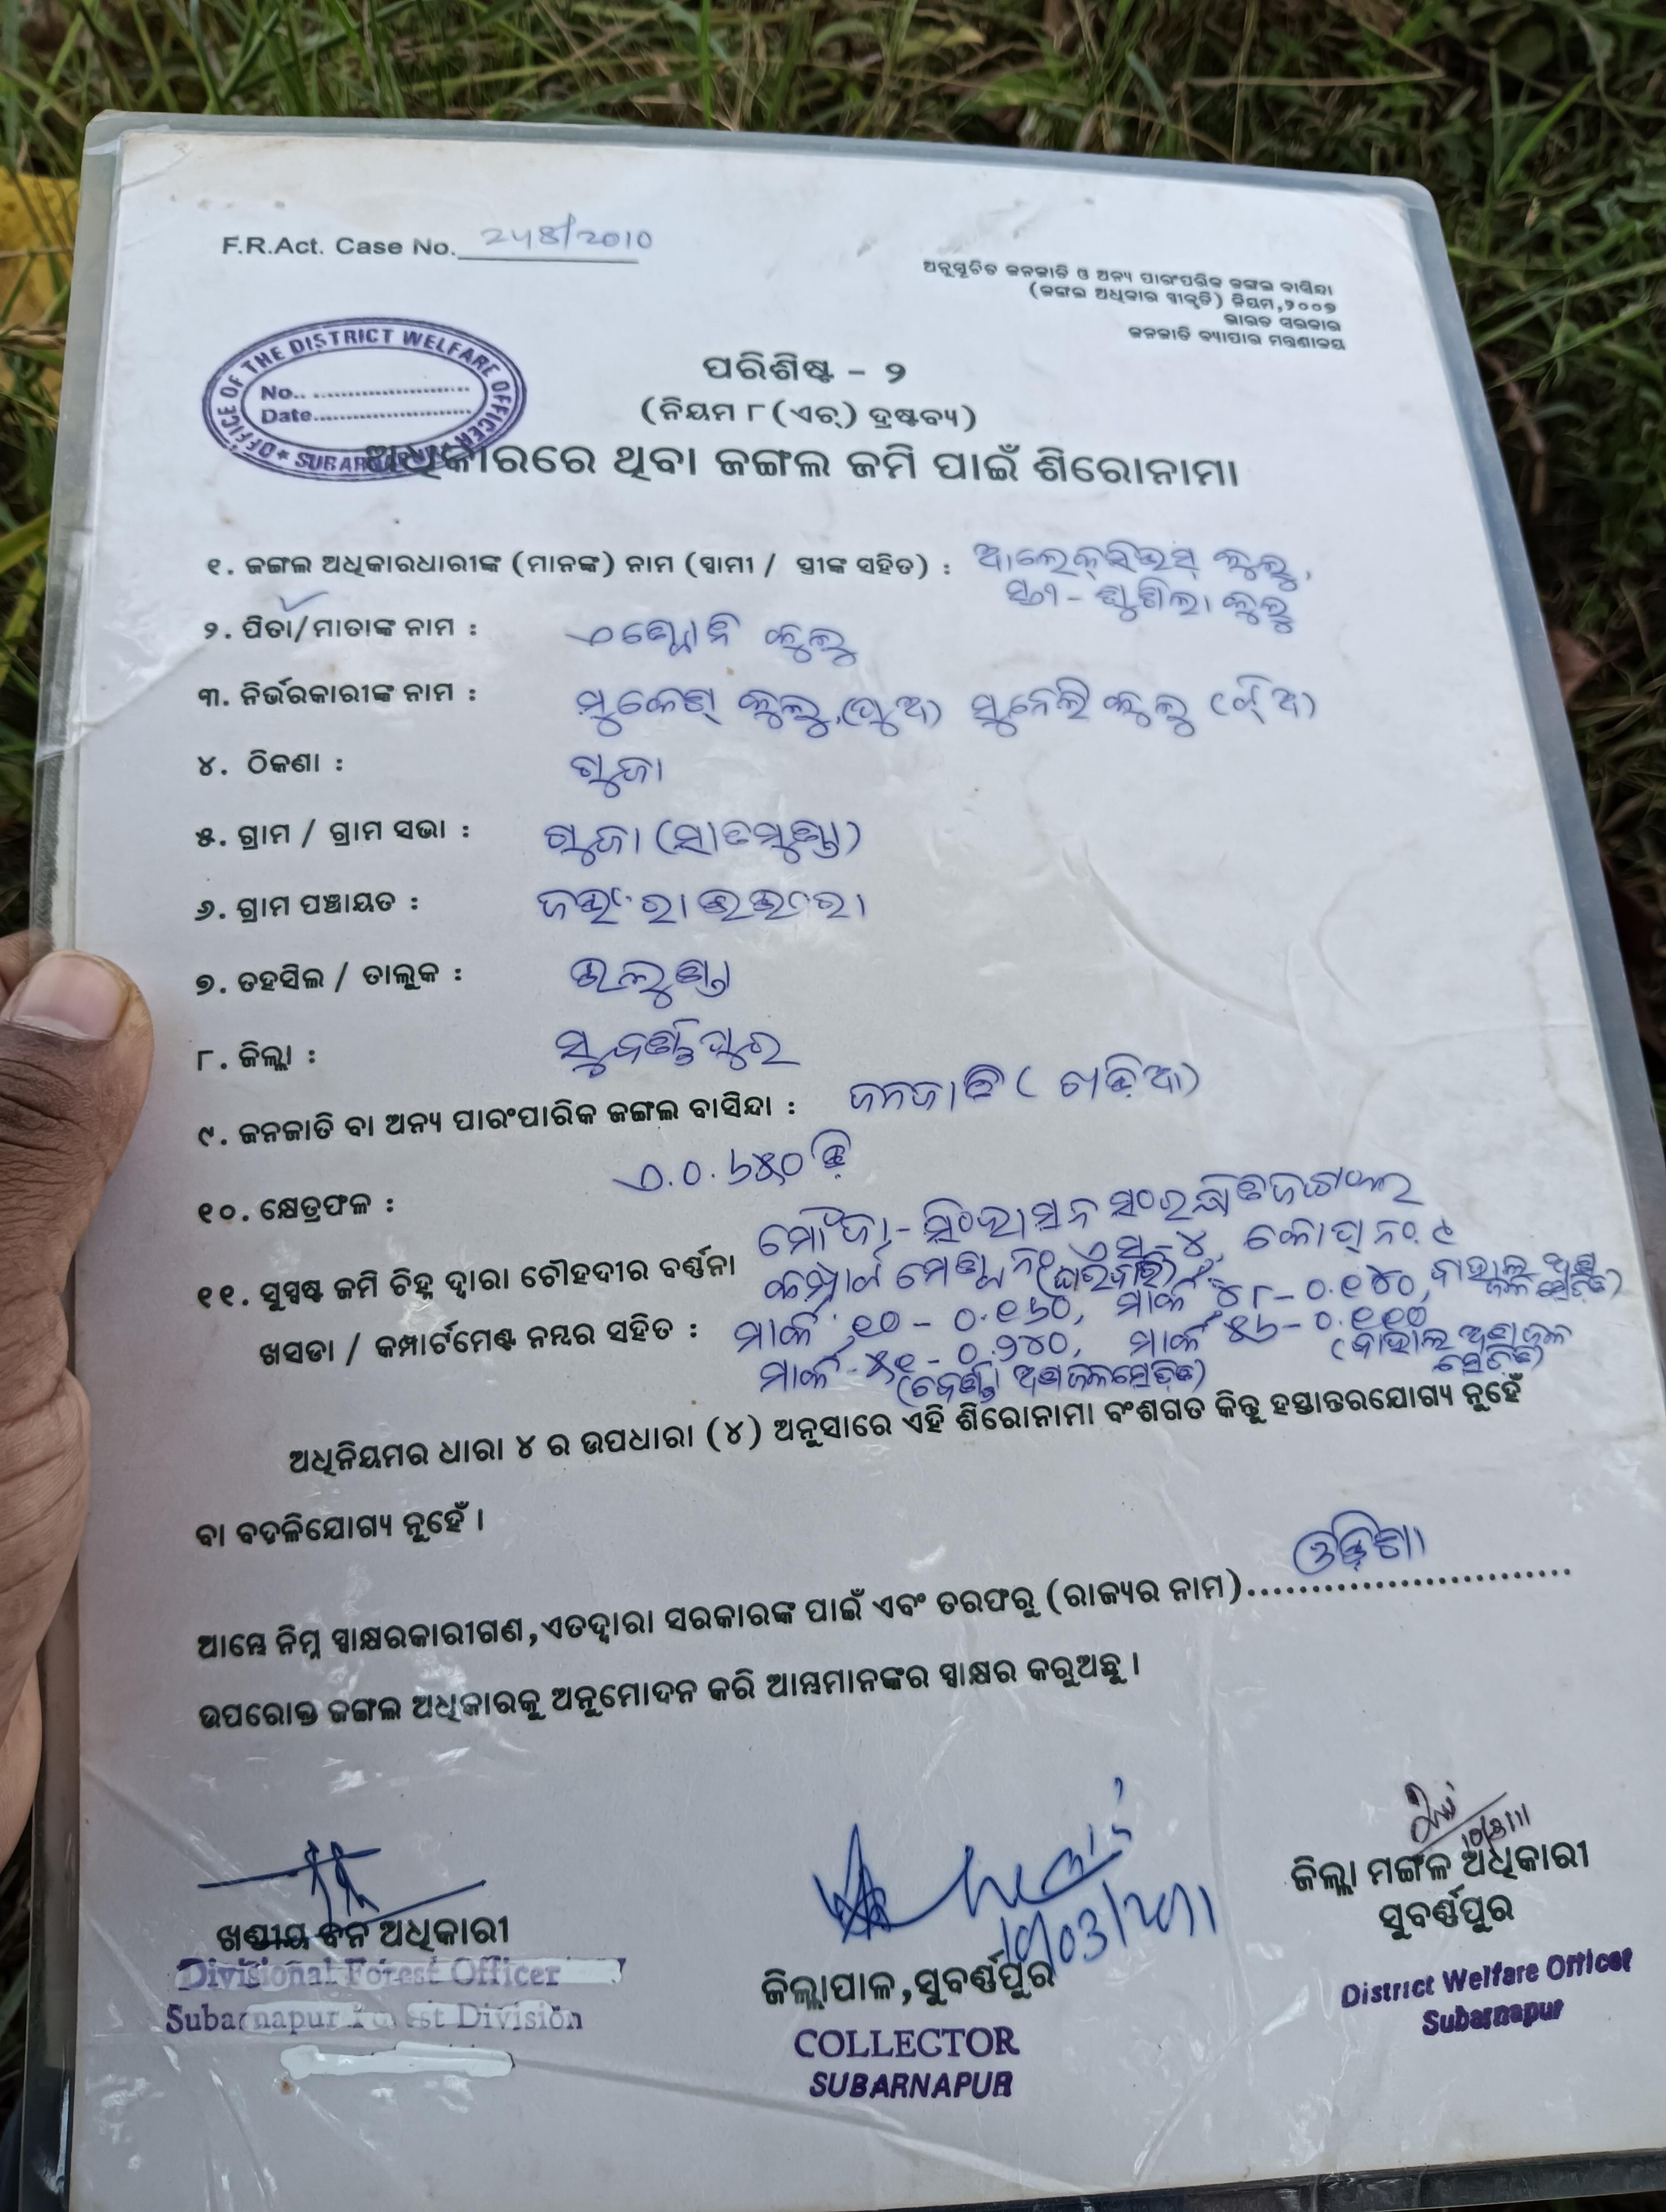 F.R.Act. Case No. 248/2010
ଅନୁସୂଚିତ ଜନଜାତି ଓ ଅନ୍ୟ ପାରଂପରିକ ଜଙ୍ଗଲ ବାସିନ୍ଦା
(ଜଙ୍ଗଲ ଅଧିକାର ସ୍ୱୀକୃତି) ନିୟମ,୨୦୦୭
ଭାରତ ସରକାର
ଜନଜାତି ବ୍ୟାପାର ମନ୍ତ୍ରଣାଳୟ
OFFICE OF THE DISTRICT WELFARE OFFICER
No.
Date
ପରିଶିଷ୍ଟ - ୨
(ନିୟମ ୮ (ଏଚ୍) ଦ୍ରଷ୍ଟବ୍ୟ)
ଅଧିକାରରେ ଥିବା ଜଙ୍ଗଲ ଜମି ପାଇଁ ଶିରୋନାମା
୧. ଜଙ୍ଗଲ ଅଧିକାରଧାରୀଙ୍କ (ମାନଙ୍କ) ନାମ (ସ୍ୱାମୀ / ସ୍ତ୍ରୀଙ୍କ ସହିତ) : ଆଲେକ୍ସିଉସ୍ କୁଲୁ,
ସ୍ତ୍ରୀ - ସୁଶିଲା କୁଲୁ
୨. ପିତା/ମାତାଙ୍କ ନାମ : ଏଣ୍ଟୋନି କୁଲୁ
୩. ନିର୍ଭରକାରୀଙ୍କ ନାମ : ମୁକେଶ୍ କୁଲୁ,(ପୁଅ) ସୁନେଲି କୁଲୁ (ଝିଅ)
୪. ଠିକଣା : ଗୁଜା
୫. ଗ୍ରାମ / ଗ୍ରାମ ସଭା : ଗୁଜା (ସାତମୁଣ୍ଡା)
୬. ଗ୍ରାମ ପଞ୍ଚାୟତ :
୭. ତହସିଲ / ତାଲୁକ : ଉଲୁଣ୍ଡା
୮. ଜିଲ୍ଲା : ସୁବର୍ଣ୍ଣପୁର
୯. ଜନଜାତି ବା ଅନ୍ୟ ପାରଂପାରିକ ଜଙ୍ଗଲ ବାସିନ୍ଦା : ଜନଜାତି ( ଖଡ଼ିଆ)
୧୦. କ୍ଷେତ୍ରଫଳ : ଏ.୦.୬୫୦ ଡି
୧୧. ସୁସ୍ପଷ୍ଟ ଜମି ଚିହ୍ନ ଦ୍ୱାରା ଚୌହଦୀର ବର୍ଣ୍ଣନା ମୌଜା - ସିଂହାସନ ସଂରକ୍ଷିତ ଜଙ୍ଗଲ
କମ୍ପାର୍ଟମେଣ୍ଟ ନଂ ଏସ-୪,
ଖସଡା / କମ୍ପାର୍ଟମେଣ୍ଟ ନମ୍ବର ସହିତ : ମାର୍କ ୧୦ - ୦.୧୬୦, ମାର୍କ ୪୮ - ୦.୧୪୦,
ମାର୍କ - ୫୧ - ୦.୨୪୦, ମାର୍କ ୫୬ - ୦.୧୧୦
ଅଧିନିୟମର ଧାରା ୪ ର ଉପଧାରା (୪) ଅନୁସାରେ ଏହି ଶିରୋନାମା ବଂଶଗତ କିନ୍ତୁ ହସ୍ତାନ୍ତରଯୋଗ୍ୟ ନୁହେଁ
ବା ବଦଳିଯୋଗ୍ୟ ନୁହେଁ ।
ଆମ୍ଭେ ନିମ୍ନ ସ୍ୱାକ୍ଷରକାରୀଗଣ,ଏତଦ୍ୱାରା ସରକାରଙ୍କ ପାଇଁ ଏବଂ ତରଫରୁ (ରାଜ୍ୟର ନାମ) ଓଡ଼ିଶା
ଉପରୋକ୍ତ ଜଙ୍ଗଲ ଅଧିକାରକୁ ଅନୁମୋଦନ କରି ଆମ୍ଭମାନଙ୍କର ସ୍ୱାକ୍ଷର କରୁଅଛୁ ।
ଖଣ୍ଡୀୟ ବନ ଅଧିକାରୀ
Divisional Forest Officer
Subarnapur Forest Division
10/03/2011
ଜିଲ୍ଲାପାଳ,ସୁବର୍ଣ୍ଣପୁର
COLLECTOR
SUBARNAPUR
ଜିଲ୍ଲା ମଙ୍ଗଳ ଅଧିକାରୀ
ସୁବର୍ଣ୍ଣପୁର
District Welfare Officer
Subarnapur